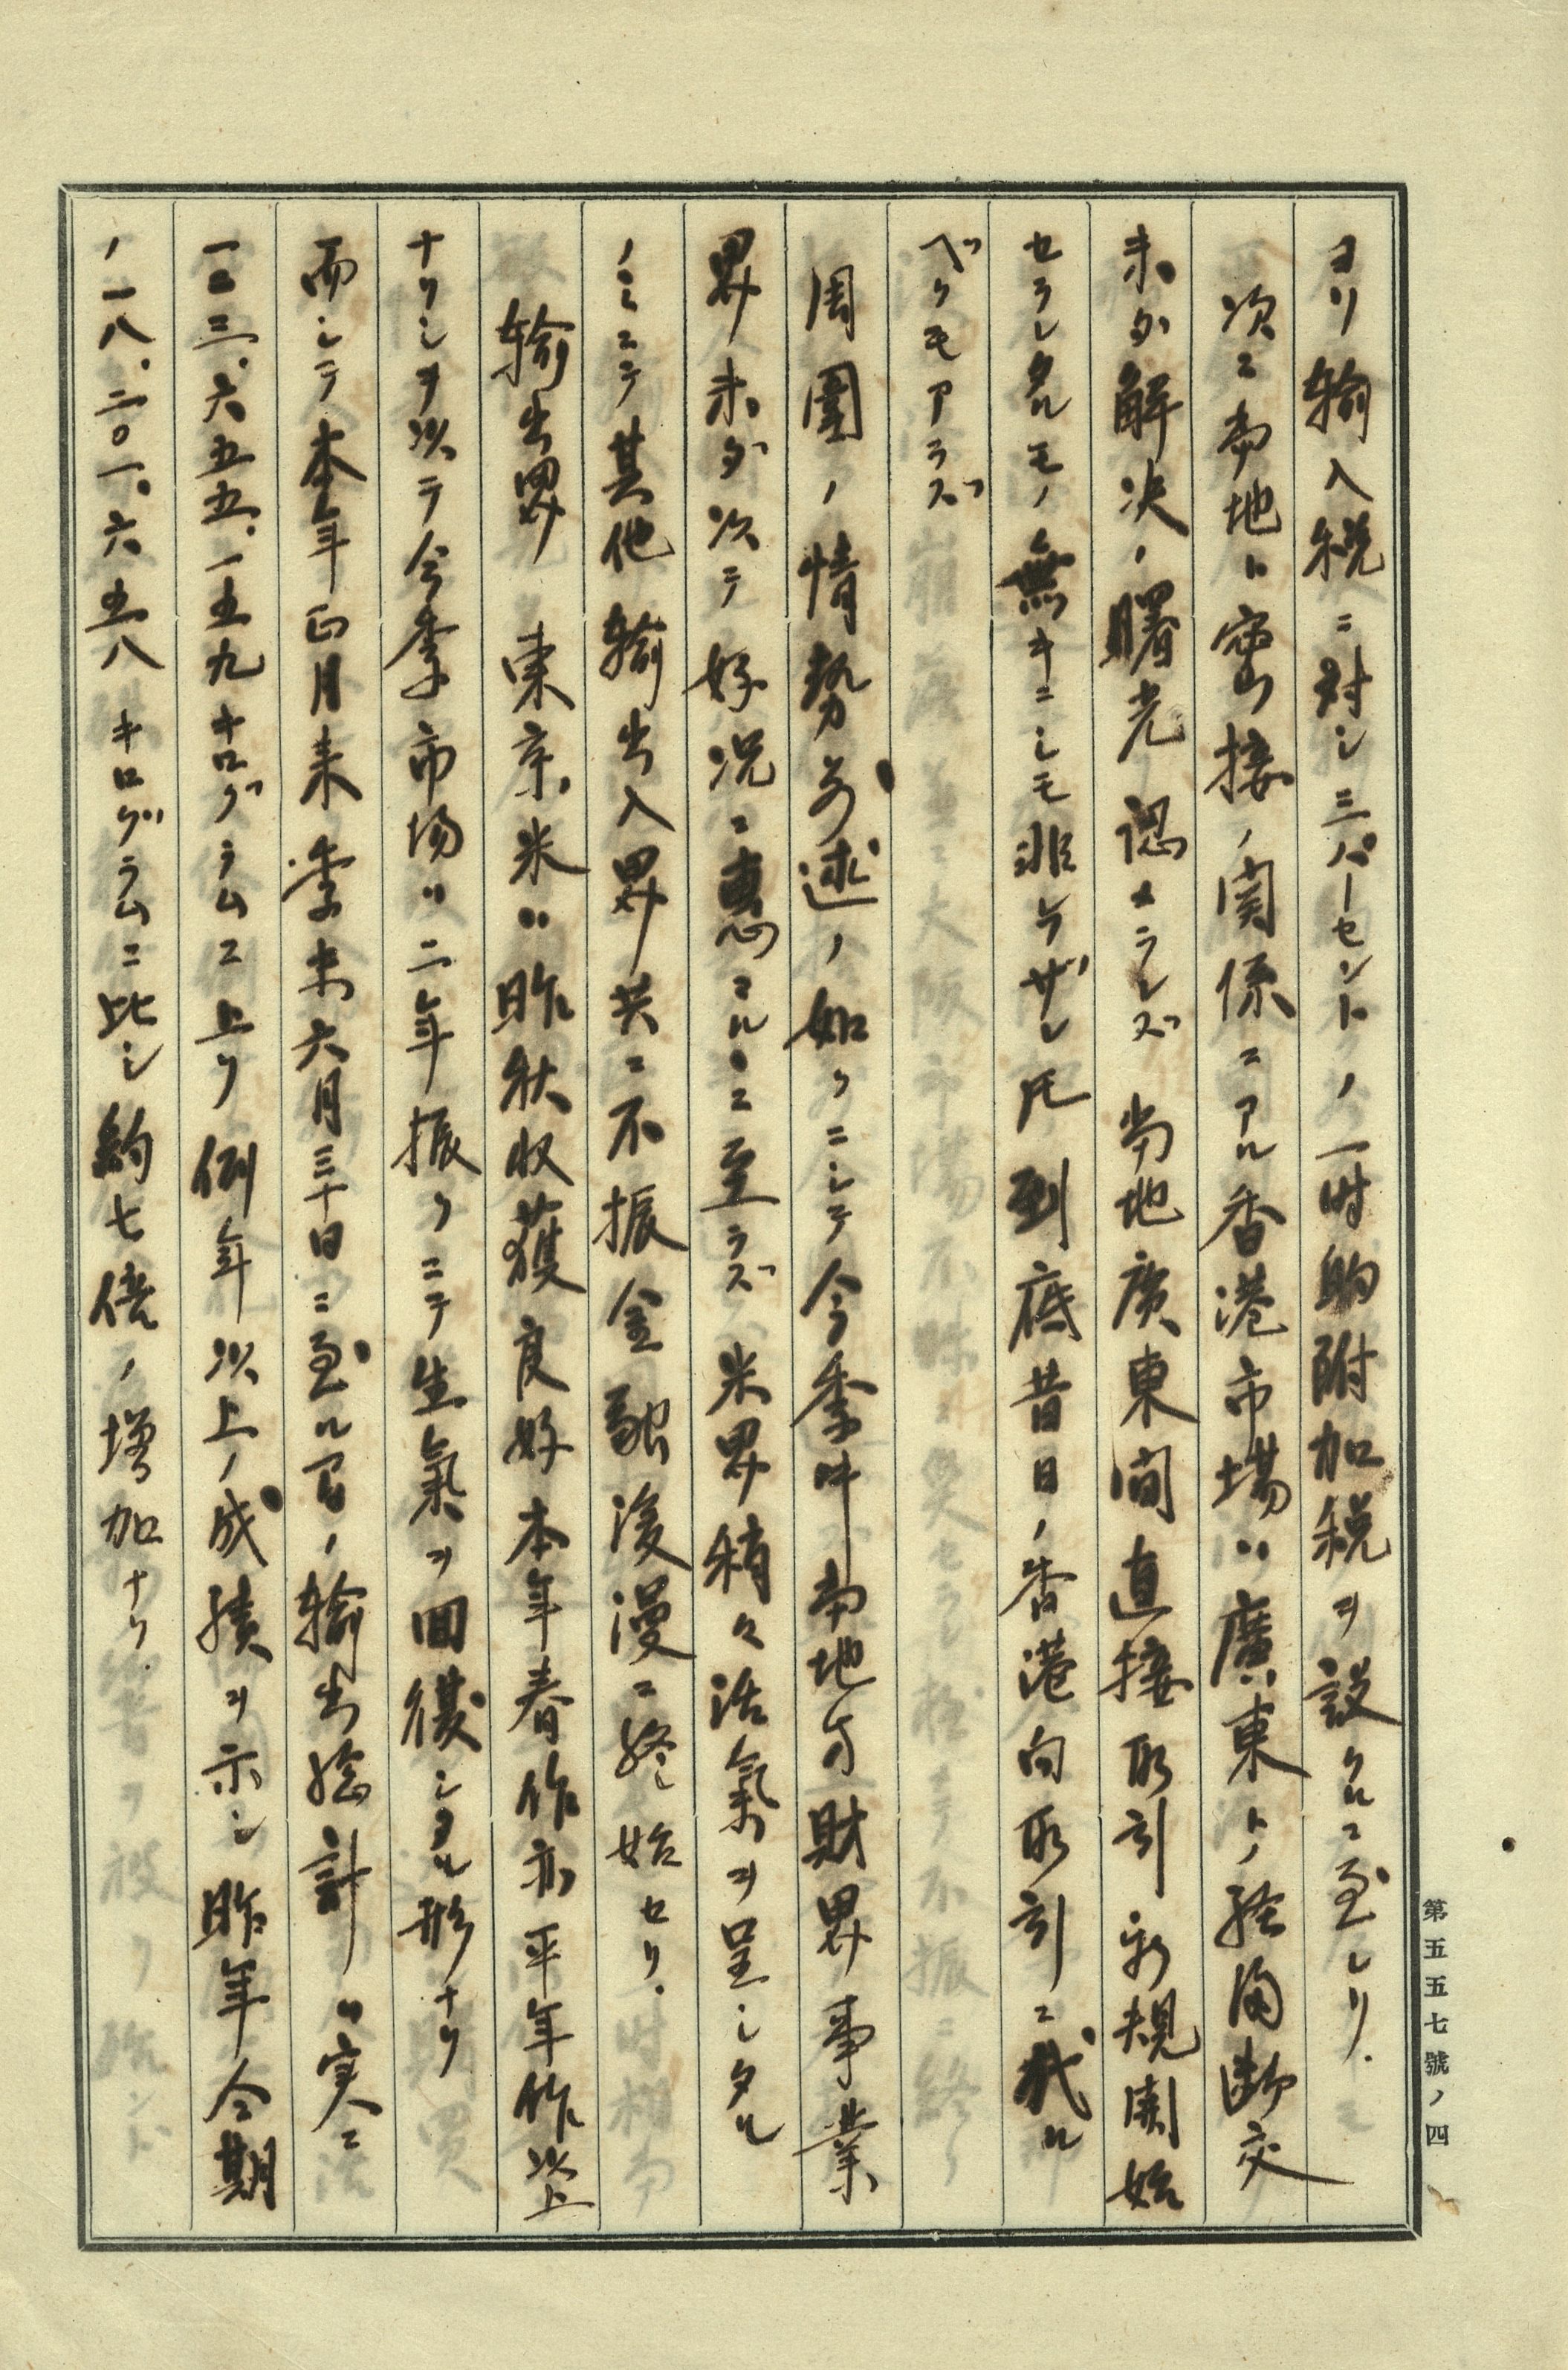 ヨリ輸入税ニ対シ三パーセントノ一時的附加税ヲ設クルニ至レリ.
次ニ当地ト密接ノ関係ニアル香港市場ハ廣東トノ経済断交
未ダ解決ノ曙光認メラレズ当地廣東間直接取引新規開始
セラレタルモノ無キニシモ非レザレ𪜈到底昔日ノ香港向取引ニ代ル
ベクモアラズ
周圍ノ情勢前述ノ如クニシテ今季中当地方財界事業
界未ダ次テ好况ニ惠マルヽニ至ラズ米界稍々活氣ヲ呈シタル
ノミニテ其他輸出入界共ニ不振金融緩漫ニ終始セリ.
輸出界 東京米ハ昨秋收獲良好本年春作亦平年作以上
ナリシヲ以テ今季市場ハ二年振リニテ生氣ヲ回復シタル形ナリ
而シテ本年正月来季末六月三十日ニ至ル間ノ輸出総計ハ実ニ
一二三.六五五.一五九キログラムニ上リ例年以上ノ成績ヲ示シ昨年今期
ノ一八.二〇一.六五八キログラムニ比シ約七倍ノ増加ナリ.
第五五七號ノ四